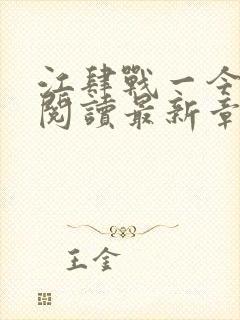 江肆戰一今
閱讀最新章
王金